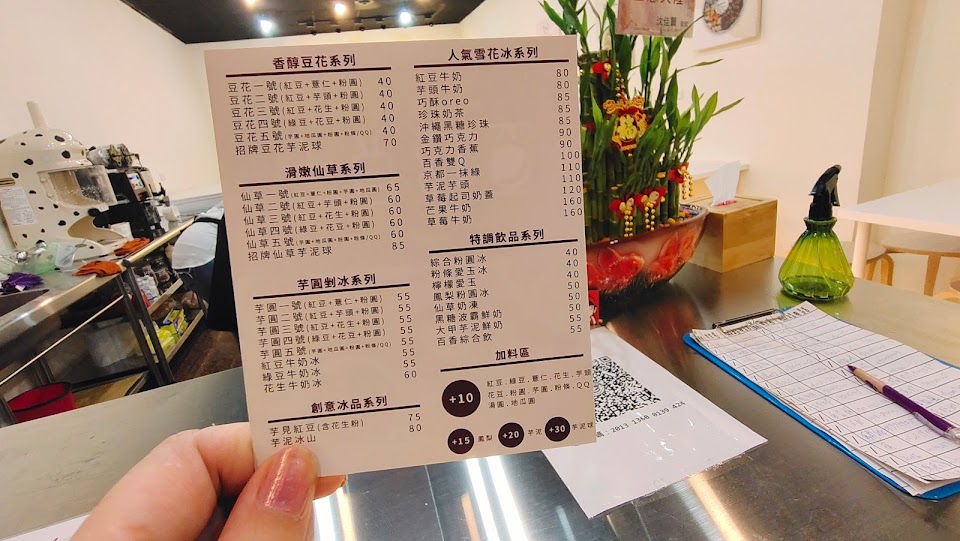 香醇豆花系列
豆花一號(紅豆+薏仁+粉圓) 40
豆花二號(紅豆+芋頭+粉圓) 40
豆花三號(紅豆+花生+粉圓) 40
豆花四號(綠豆+花豆+粉圓) 40
豆花五號(芋圓+地瓜圓+粉圓+粉條/QQ) 40
招牌豆花芋泥球 70
滑嫩仙草系列
仙草一號(紅豆+薏仁+粉圓+芋圓+地瓜圓) 65
仙草二號(紅豆+芋頭+粉圓) 60
仙草三號(紅豆+花生+粉圓) 60
仙草四號(綠豆+花豆+粉圓) 60
仙草五號(芋圓+地瓜圓+粉圓+粉條/QQ) 60
招牌仙草芋泥球 85
芋圓剉冰系列
芋圓一號(紅豆+薏仁+粉圓) 55
芋圓二號(紅豆+芋頭+粉圓) 55
芋圓三號(紅豆+花生+粉圓) 55
芋圓四號(綠豆+花豆+粉圓) 55
芋圓五號(芋圓+地瓜圓+粉圓+粉條/QQ) 55
紅豆牛奶冰 55
綠豆牛奶冰 55
花生牛奶冰 60
創意冰品系列
芋見紅豆(含花生粉) 75
芋泥冰山 80
人氣雪花冰系列
紅豆牛奶 80
芋頭牛奶 80
巧酥oreo 85
珍珠奶茶 85
沖繩黑糖珍珠 85
金鑽巧克力 90
巧克力香蕉 90
百香雙Q 100
京都一抹綠 110
芋泥芋頭 110
草莓起司奶蓋 120
芒果牛奶 160
草莓牛奶 160
特調飲品系列
綜合粉圓冰 40
粉條愛玉冰 40
檸檬愛玉 40
鳳梨粉圓冰 50
仙草奶凍 50
黑糖波霸鮮奶 50
大甲芋泥鮮奶 55
百香綜合飲 55
加料區
+10 紅豆.綠豆.薏仁.花生.芋頭
花豆.粉圓.芋圓.粉條.QQ
湯圓.地瓜圓
+15 鳳梨 +20 芋泥 +30 芋泥球
沈佳霖
2813 1368 8139 424